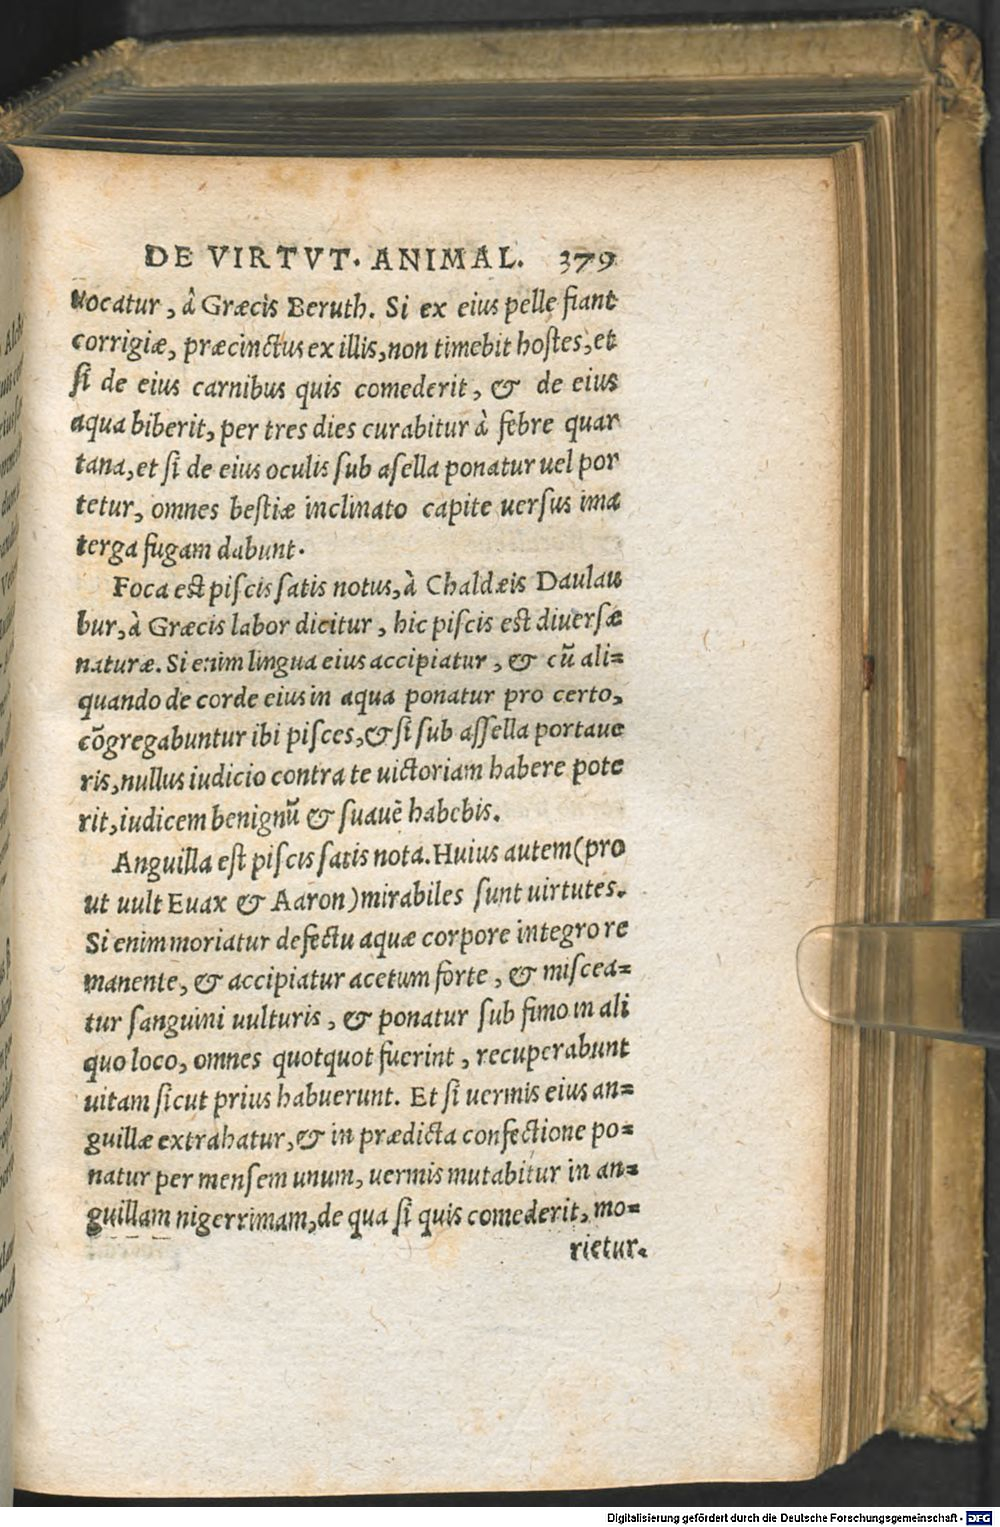 DE VIRTVT. ANIMAL. 379
uocatur, â Græcis Beruth. Si ex eius pelle fiant
corrigiæ, præcinctus ex illis, non timebit hostes, et
si de eius carnibus quis comederit, & de eius
aqua biberit, per tres dies curabitur à febre quar
tana, et si de eius oculis sub asella ponatur uel por
tetur, omnes bestiæ inclinato capite uersus ima
terga fugam dabunt.
Foca est piscis satis notus, à Chaldæis Daulau
bur, à Græcis labor dicitur, hic piscis est diuersæ
naturæ. Si enim lingua eius accipiatur, & cũ ali=
quando de corde eius in aqua ponatur pro certo,
cõgregabuntur ibi pisces, & si sub assella portaue
ris, nullus iudicio contra te uictoriam habere pote
rit, iudicem benignũ & suauẽ habebis.
Anguilla est piscis satis nota. Huius autem (pro
ut uult Euax & Aaron) mirabiles sunt uirtutes.
Si enim moriatur defectu aquæ corpore integro re
manente, & accipiatur acetum forte, & miscea=
tur sanguini uulturis, & ponatur sub fimo in ali
quo loco, omnes quotquot fuerint, recuperabunt
uitam sicut prius habuerunt. Et si uermis eius an=
guillæ extrahatur, & in prædicta confectione po=
natur per mensem unum, uermis mutabitur in an=
guillam nigerrimam, de qua si quis comederit, mo=
rietur.
Digitalisierung gefördert durch die Deutsche Forschungsgemeinschaft - DFG